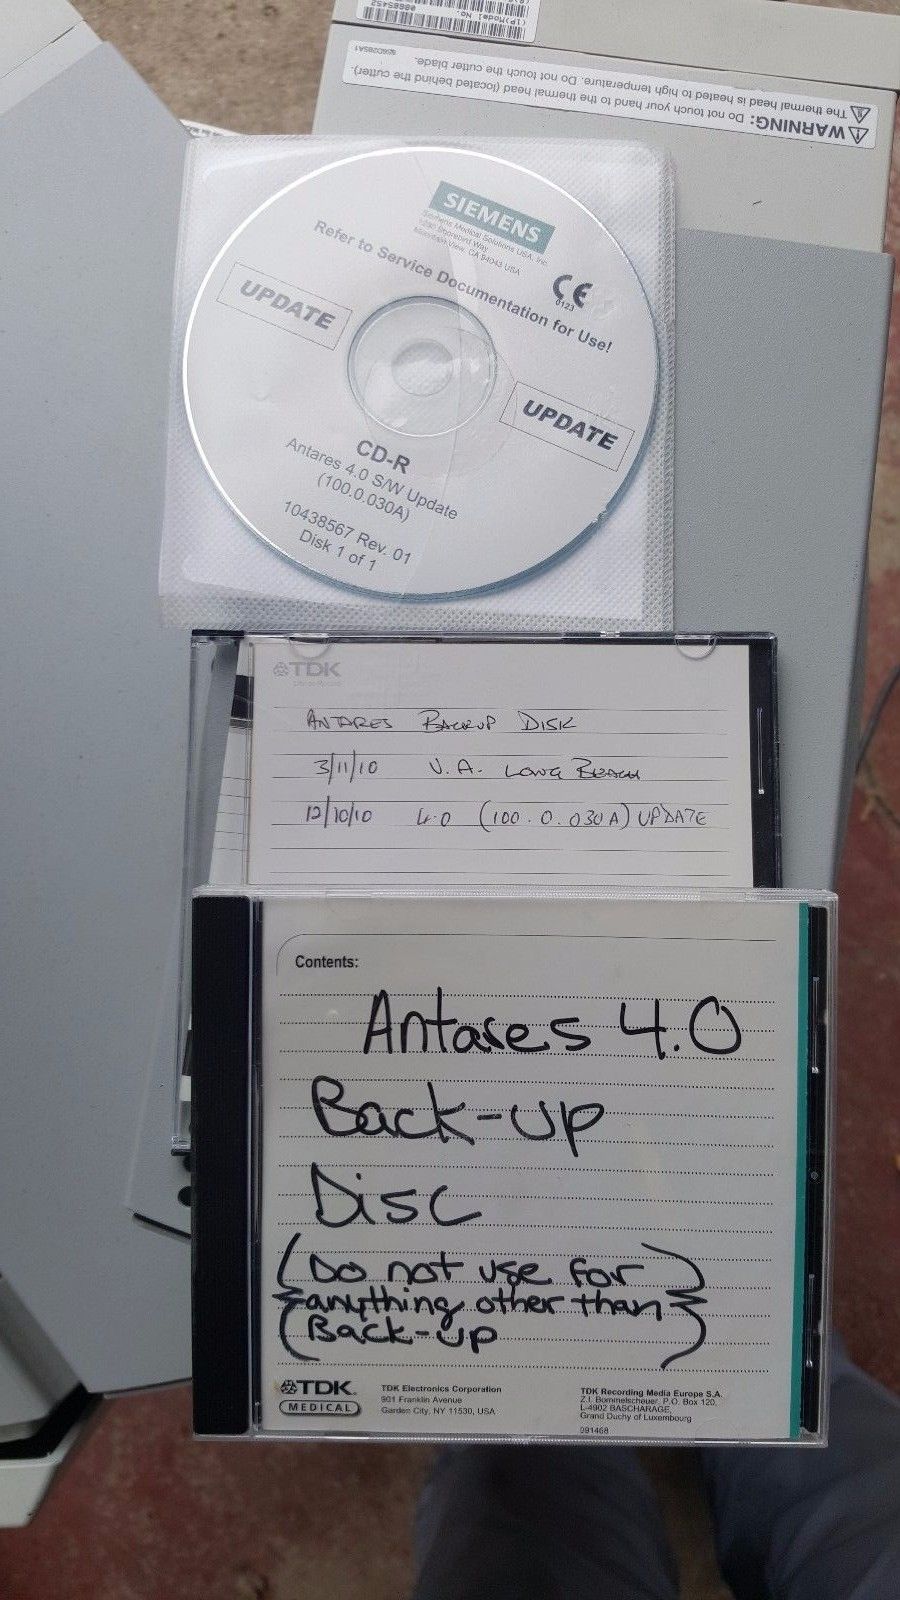 (1P)Model No.
06685452
⚠WARNING: Do not touch your hand to the thermal head (located behind the cutter).
The thermal head is heated to high temperature. Do not touch the cutter blade.
SIEMENS
Siemens Medical Solutions USA, Inc.
1230 Shorebird Way
Mountain View, CA 94043 USA
Refer to Service Documentation for Use!
CE
0123
UPDATE
UPDATE
CD-R
Antares 4.0 S/W Update
(100.0.030A)
10438567 Rev. 01
Disk 1 of 1
TDK
ANTARES BACKUP DISK
3/11/10 V.A. LONG BEACH
12/10/10 4.0 (100.0.030A) UPDATE
Contents:
Antares 4.0
Back-up
Disc
(Do not use for
anything other than
Back-up)
TDK
MEDICAL
TDK Electronics Corporation
901 Franklin Avenue
Garden City, NY 11530, USA
TDK Recording Media Europe S.A.
Z.I. Bommelscheuer, P.O. Box 120,
L-4902 BASCHARAGE,
Grand Duchy of Luxembourg
091468